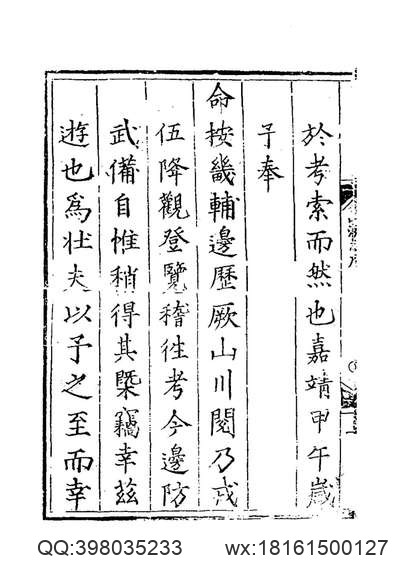 於考索而然也嘉靖甲午歲
予奉
命按畿輔邊歷厥山川閱乃戎
伍降觀登覽稽徃考今邊防
武備自惟稍得其槩竊幸玆
遊也爲壮夫以予之至而幸
QQ:398035233 wx:18161500127